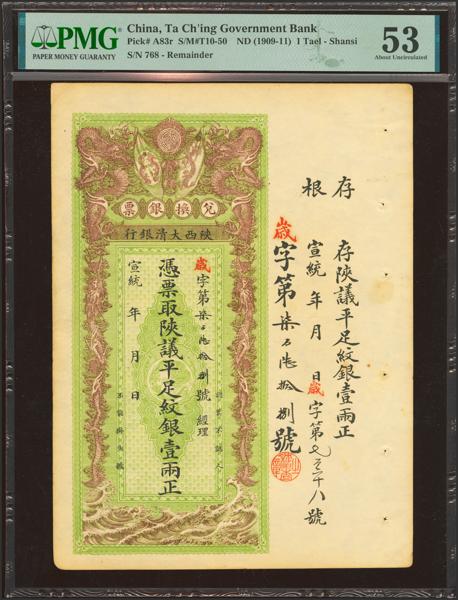 PMG
PAPER MONEY GUARANTY
China, Ta Ch'ing Government Bank
Pick# A83r S/M#T10-50 ND (1909-11) 1 Tael - Shansi
S/N 768 - Remainder
53
About Uncirculated
存根
存陝議平足紋銀壹兩正
宣統 年 月 日歲字第 八號
歲字第柒百陸拾捌號
票銀換兌
行銀清大西陝
歲字第柒百陸拾捌號 經理
憑票取陝議平足紋銀壹兩正
宣統 年 月 日